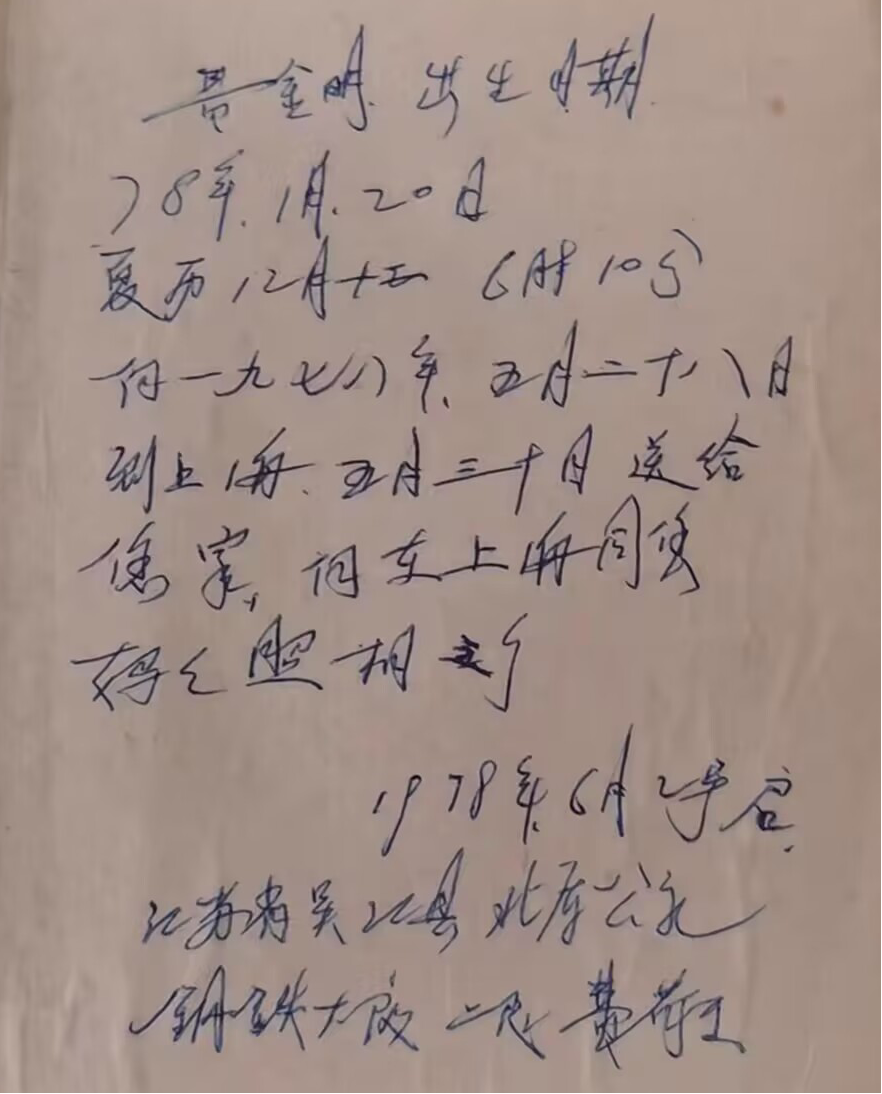 黄金明 出生日期
78年.1月.20日
夏历12月十五 6时10分
何一九七八年.五月二十八日
到上海.五月三十日送给
家,何在上海同
妈之照相
1978年6月2号启.
江苏省吴江县北厍公
钢铁大 二 费